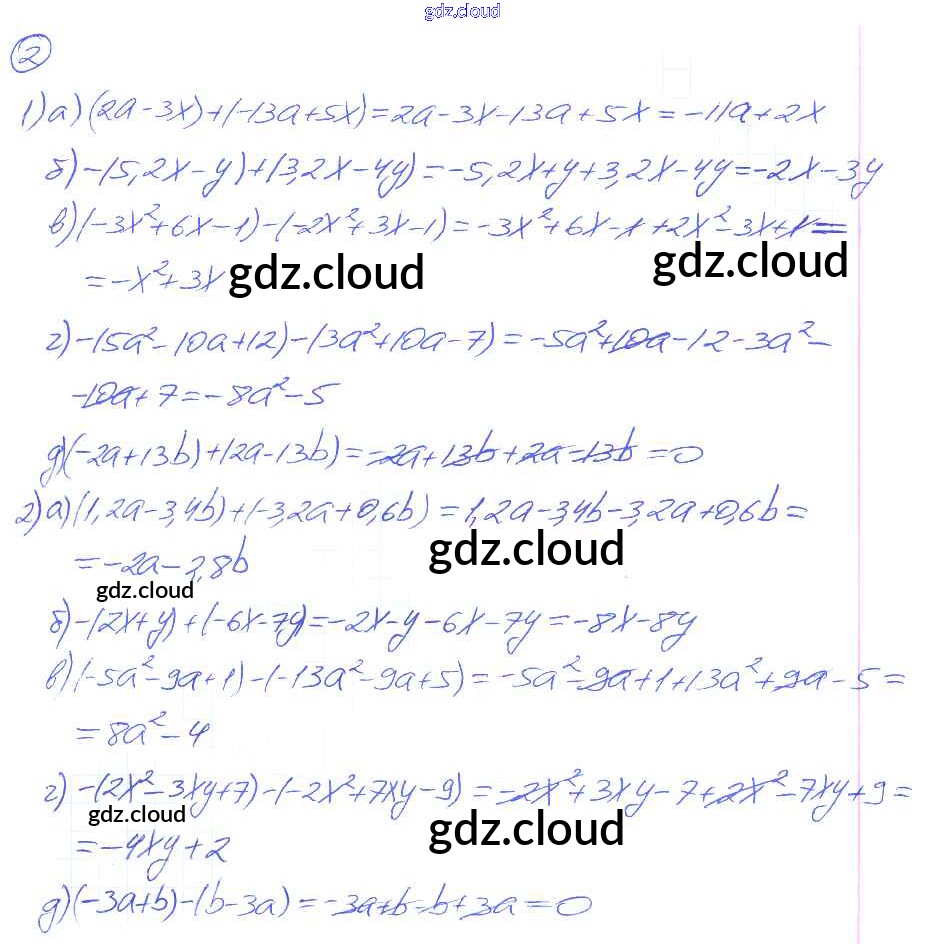 gdz.cloud
2
1) а) (2a-3x)+(-13a+5x)=2a-3x-13a+5x=-11a+2x
б) -(5,2x-y)+(3,2x-4y)=-5,2x+y+3,2x-4y=-2x-3y
в) (-3x²+6x-1)-(-2x²+3x-1)=-3x²+6x-1+2x²-3x+1=
=-x²+3x
gdz.cloud
gdz.cloud
г) -(5a²-10a+12)-(3a²+10a-7)=-5a²+10a-12-3a²-
-10a+7=-8a²-5
д) (-2a+13b)+(2a-13b)=-2a+13b+2a-13b=0
2) а) (1,2a-3,4b)+(-3,2a+0,6b)=1,2a-3,4b-3,2a+0,6b=
=-2a-2,8b
gdz.cloud
gdz.cloud
б) -(2x+y)+(-6x-7y)=-2x-y-6x-7y=-8x-8y
в) (-5a²-9a+1)-(-13a²-9a+5)=-5a²-9a+1+13a²+9a-5=
=8a²-4
г) -(2x²-3xy+7)-(-2x²+7xy-9)=-2x²+3xy-7+2x²-7xy+9=
gdz.cloud
gdz.cloud
=-4xy+2
д) (-3a+b)-(b-3a)=-3a+b-b+3a=0